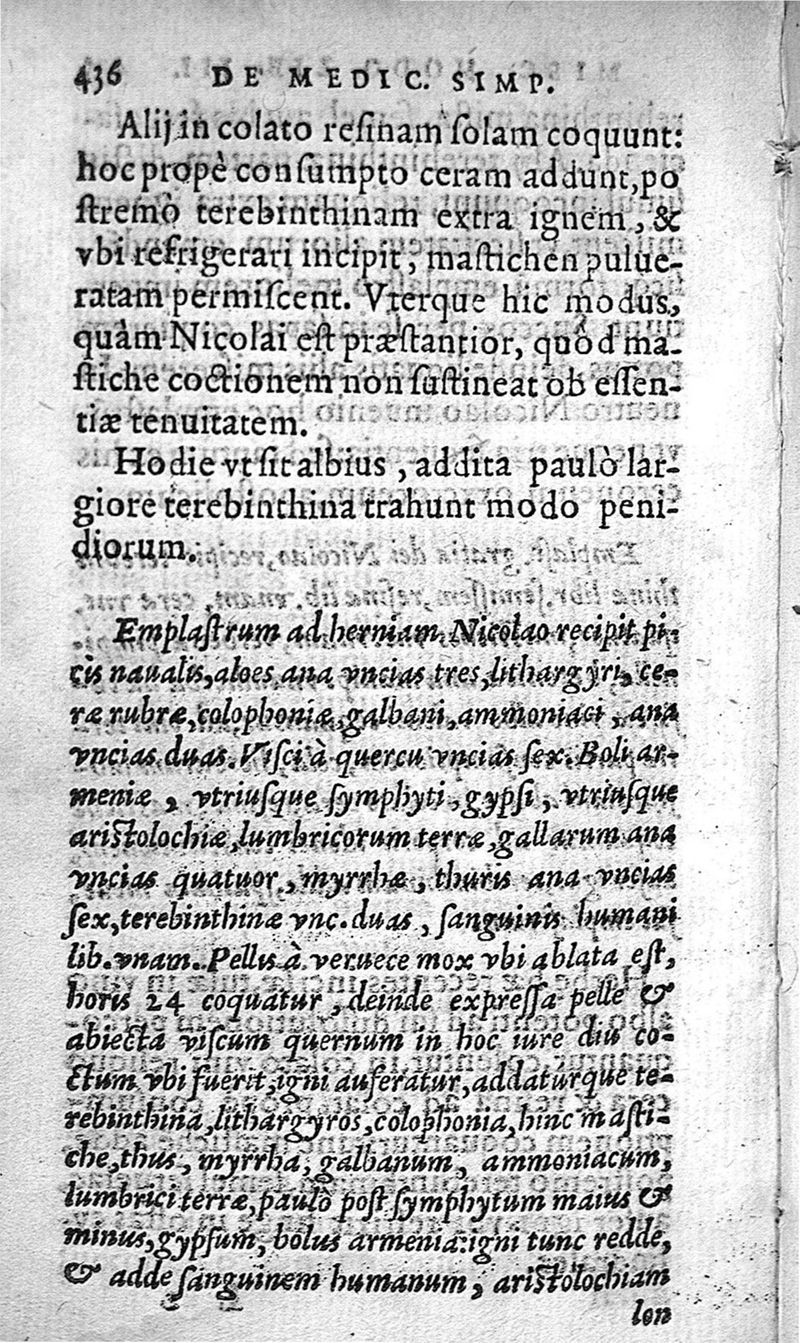 436 DE MEDIC. SIMP.
Alij in colato reſinam ſolam coquunt:
hoc propè conſumpto ceram addunt, po
ſtremò terebinthinam extra ignem, &
vbi refrigerari incipit, maſtichen pulue-
ratam permiſcent. Vterque hic modus,
quàm Nicolai eſt præſtantior, quòd ma-
ſtiche coctionem non ſuſtineat ob eſſen-
tiæ tenuitatem.
Hodie vt ſit albius, addita paulò lar-
giore terebinthina trahunt modo peni-
diorum.
Emplaſtrum ad herniam Nicolao recipit pi-
cis naualis, aloes ana vncias tres, lithargyri, ce-
ræ rubræ, colophoniæ, galbani, ammoniaci, ana
vncias duas. Viſci à quercu vncias ſex. Boli ar-
meniæ, vtriuſque ſymphyti, gypſi, vtriuſque
ariſtolochiæ, lumbricorum terræ, gallarum ana
vncias quatuor, myrrhæ, thuris ana vncias
ſex, terebinthinæ vnc. duas, ſanguinis humani
lib. vnam. Pellis à veruece mox vbi ablata eſt,
horis 24 coquatur, deinde expreſſa pelle &
abiecta viſcum quernum in hoc iure diu co-
ctum vbi fuerit, igni auferatur, addaturque te-
rebinthina, lithargyros, colophonia, hinc maſti-
che, thus, myrrha, galbanum, ammoniacum,
lumbrici terræ, paulò poſt ſymphytum maius &
minus, gypſum, bolus armenia: igni tunc redde,
& adde ſanguinem humanum, ariſtolochiam
lon